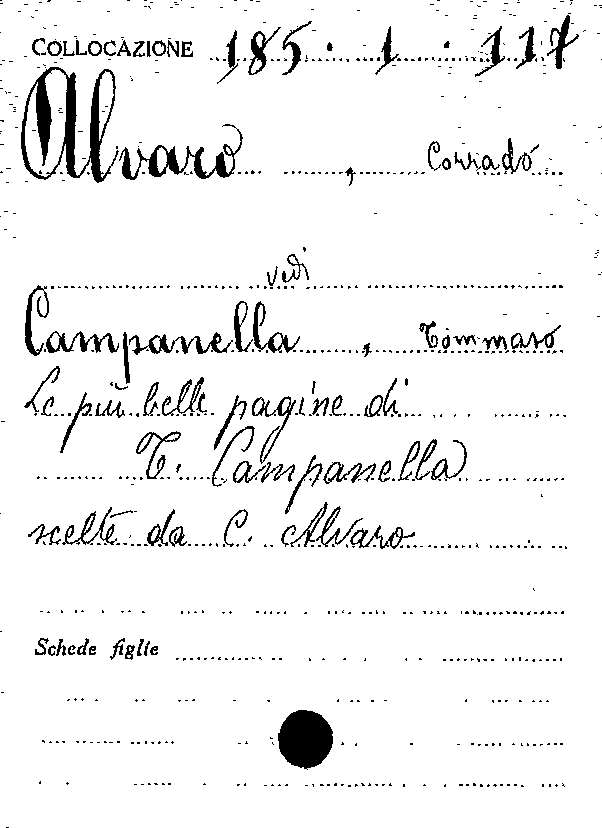 COLLOCAZIONE 185. 1. 117
Alvaro, Corrado
vedi
Campanella, Tommaso
Le più belle pagine di
T. Campanella
scelte da C. Alvaro
Schede figlie